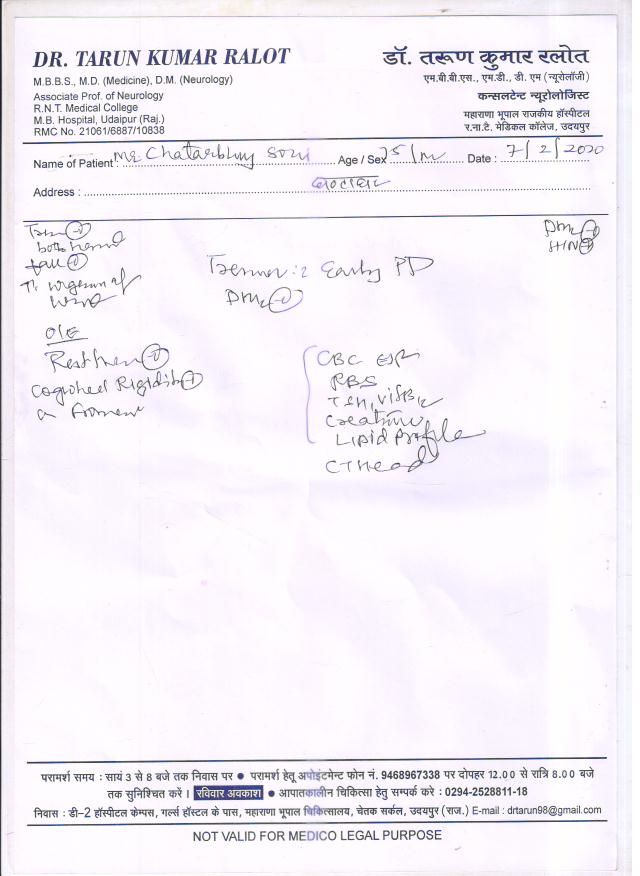 DR. TARUN KUMAR RALOT
M.B.B.S., M.D. (Medicine), D.M. (Neurology)
Associate Prof. of Neurology
R.N.T. Medical College
M.B. Hospital, Udaipur (Raj.)
RMC No. 21061/6887/10838
डॉ. तरूण कुमार रलोत
एम.बी.बी.एस., एम.डी., डी. एम (न्यूरोलॉजी)
कन्सलटेन्ट न्यूरोलोजिस्ट
महाराणा भूपाल राजकीय हॉस्पीटल
र.ना.टे. मेडिकल कॉलेज, उदयपुर
Name of Patient : Mr Chatarbhuj Soni Age / Sex 75/m Date : 7/2/2020
Address :
DM +
HTN +
both hand
Tremor : ? Early PD
DM +
O/E
Rest +
Cogwheel Rigidity +
CBC ESR
RBS
TSH, Vit B12
Creatinine
Lipid Profile
CT Head
परामर्श समय : सायं 3 से 8 बजे तक निवास पर ● परामर्श हेतू अपोइंटमेन्ट फोन नं. 9468967338 पर दोपहर 12.00 से रात्रि 8.00 बजे
तक सुनिश्चित करें । रविवार अवकाश ● आपातकालीन चिकित्सा हेतु सम्पर्क करे : 0294-2528811-18
निवास : डी–2 हॉस्पीटल केम्पस, गर्ल्स हॉस्टल के पास, महाराणा भूपाल चिकित्सालय, चेतक सर्कल, उदयपुर (राज.) E-mail : drtarun98@gmail.com
NOT VALID FOR MEDICO LEGAL PURPOSE